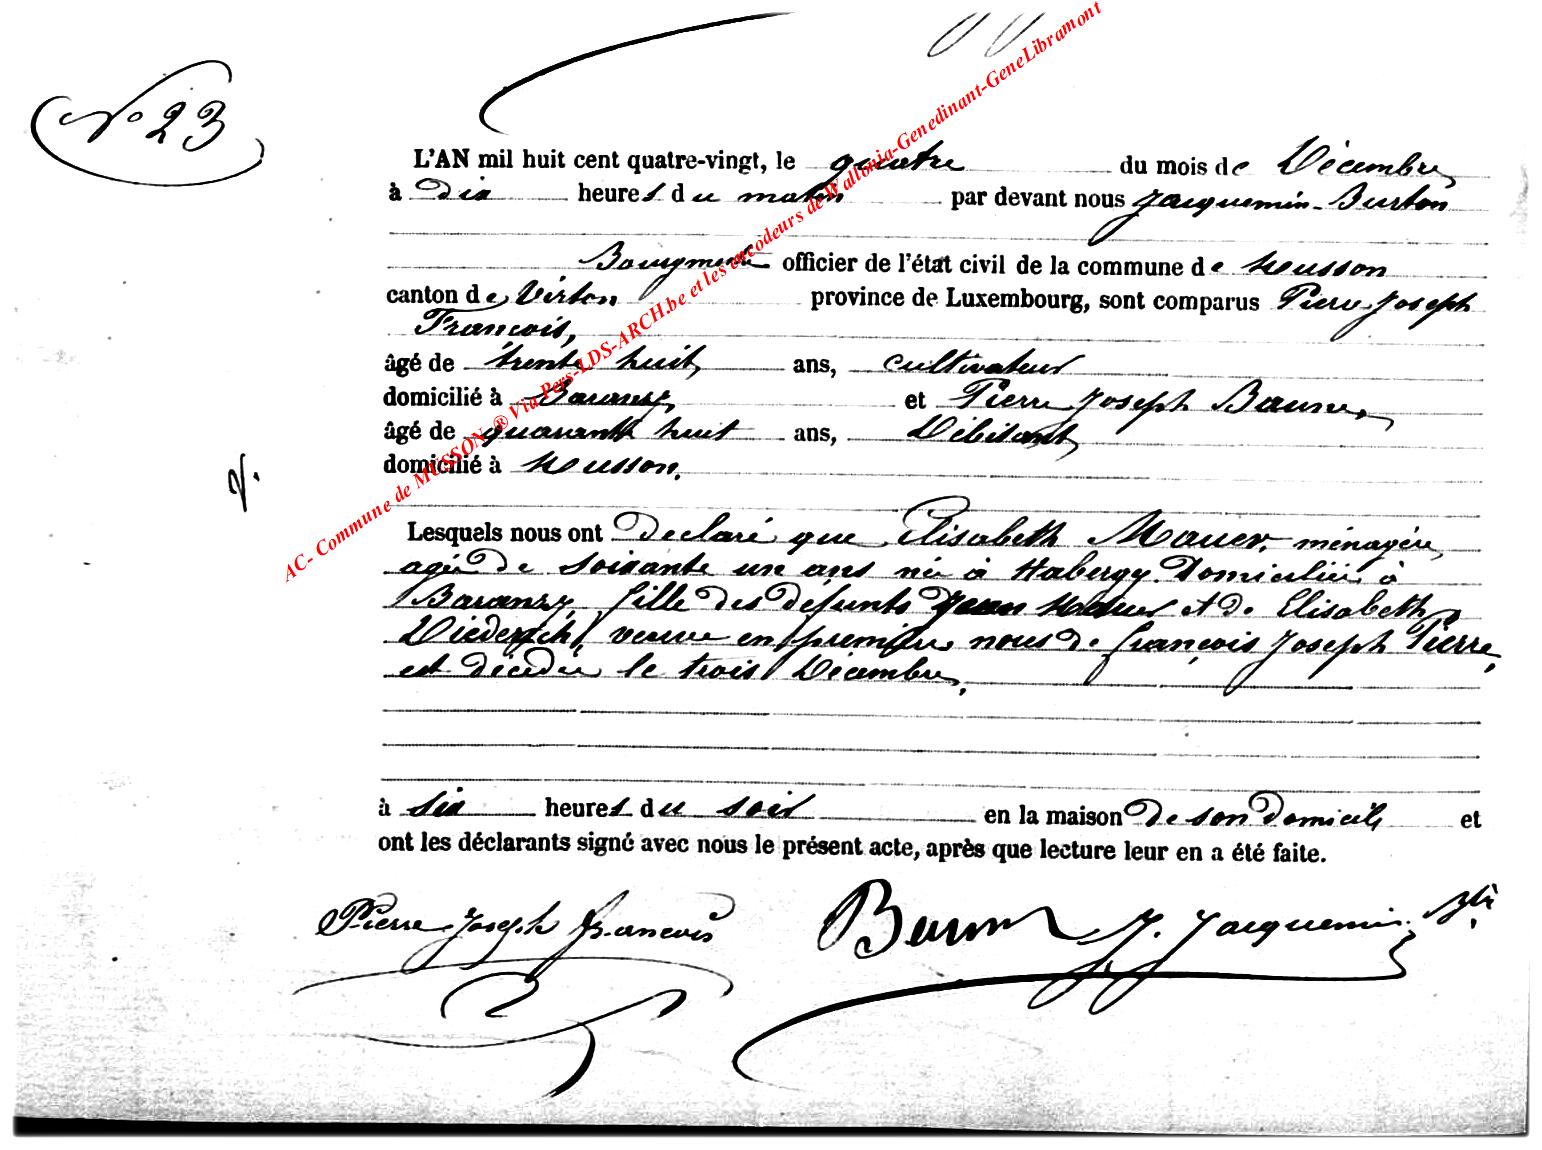 N° 23
L'AN mil huit cent quatre-vingt, le quatre du mois de Décembre
à dix heures du matin par devant nous Jacquemin-Burton
Bourgmestre officier de l'état civil de la commune de Musson
canton de Virton province de Luxembourg, sont comparus Pierre Joseph
François,
âgé de trente huit, ans, cultivateur
domicilié à Baranzy, et Pierre Joseph Baune,
âgé de quarante huit ans, Débitant,
domicilié à Musson.
Lesquels nous ont declaré que Elisabeth Mauer, ménagère,
agée de soixante un ans née à Habergy Domiciliée à
Baranzy, fille des défunts Jean Mauer et de Elisabeth
Diederich, veuve en première nous de François Joseph Pierre,
est décédée le trois Décembre,
à six heures du soir en la maison de son domicile et
ont les déclarants signé avec nous le présent acte, après que lecture leur en a été faite.
Pierre Joseph francois Baune J. Jacquemin
AC- Commune de MUSSON ® Via Pers-LDS-ARCH.be et les encodeurs de Wallonia-Genedinant-GeneLibramont